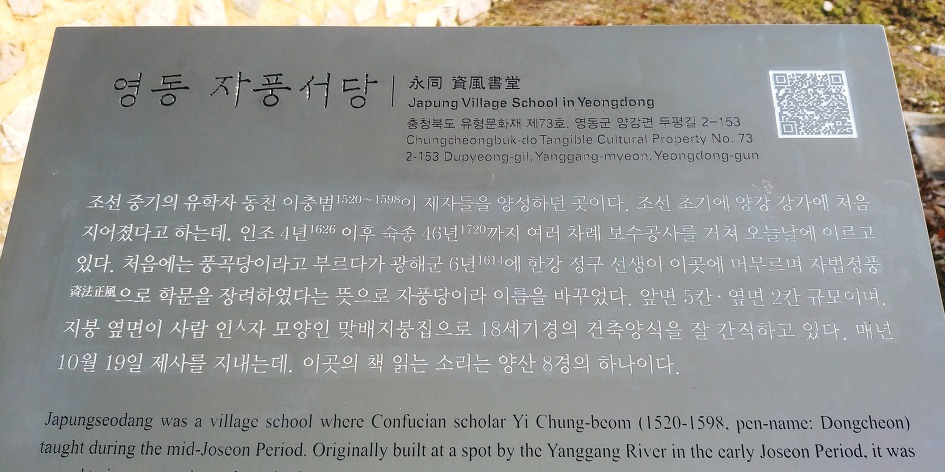 영동 자풍서당
永同 資風書堂
Japung Village School in Yeongdong
충청북도 유형문화재 제73호, 영동군 양강면 두평길 2-153
Chungcheongbuk-do Tangible Cultural Property No. 73
2-153 Dupyeong-gil, Yanggang-myeon, Yeongdong-gun
조선 중기의 유학자 동천 이충범1520~1598이 제자들을 양성하던 곳이다. 조선 초기에 양강 강가에 처음
지어졌다고 하는데, 인조 4년1626 이후 숙종 46년1720까지 여러 차례 보수공사를 거쳐 오늘날에 이르고
있다. 처음에는 풍곡당이라고 부르다가 광해군 6년1614에 한강 정구 선생이 이곳에 머무르며 자법정풍
資法正風으로 학문을 장려하였다는 뜻으로 자풍당이라 이름을 바꾸었다. 앞면 5칸·옆면 2칸 규모이며,
지붕 옆면이 사람 인ㅅ자 모양인 맞배지붕집으로 18세기경의 건축양식을 잘 간직하고 있다. 매년
10월 19일 제사를 지내는데, 이곳의 책 읽는 소리는 양산 8경의 하나이다.
Japungseodang was a village school where Confucian scholar Yi Chung-beom (1520-1598, pen-name: Dongcheon)
taught during the mid-Joseon Period. Originally built at a spot by the Yanggang River in the early Joseon Period, it was